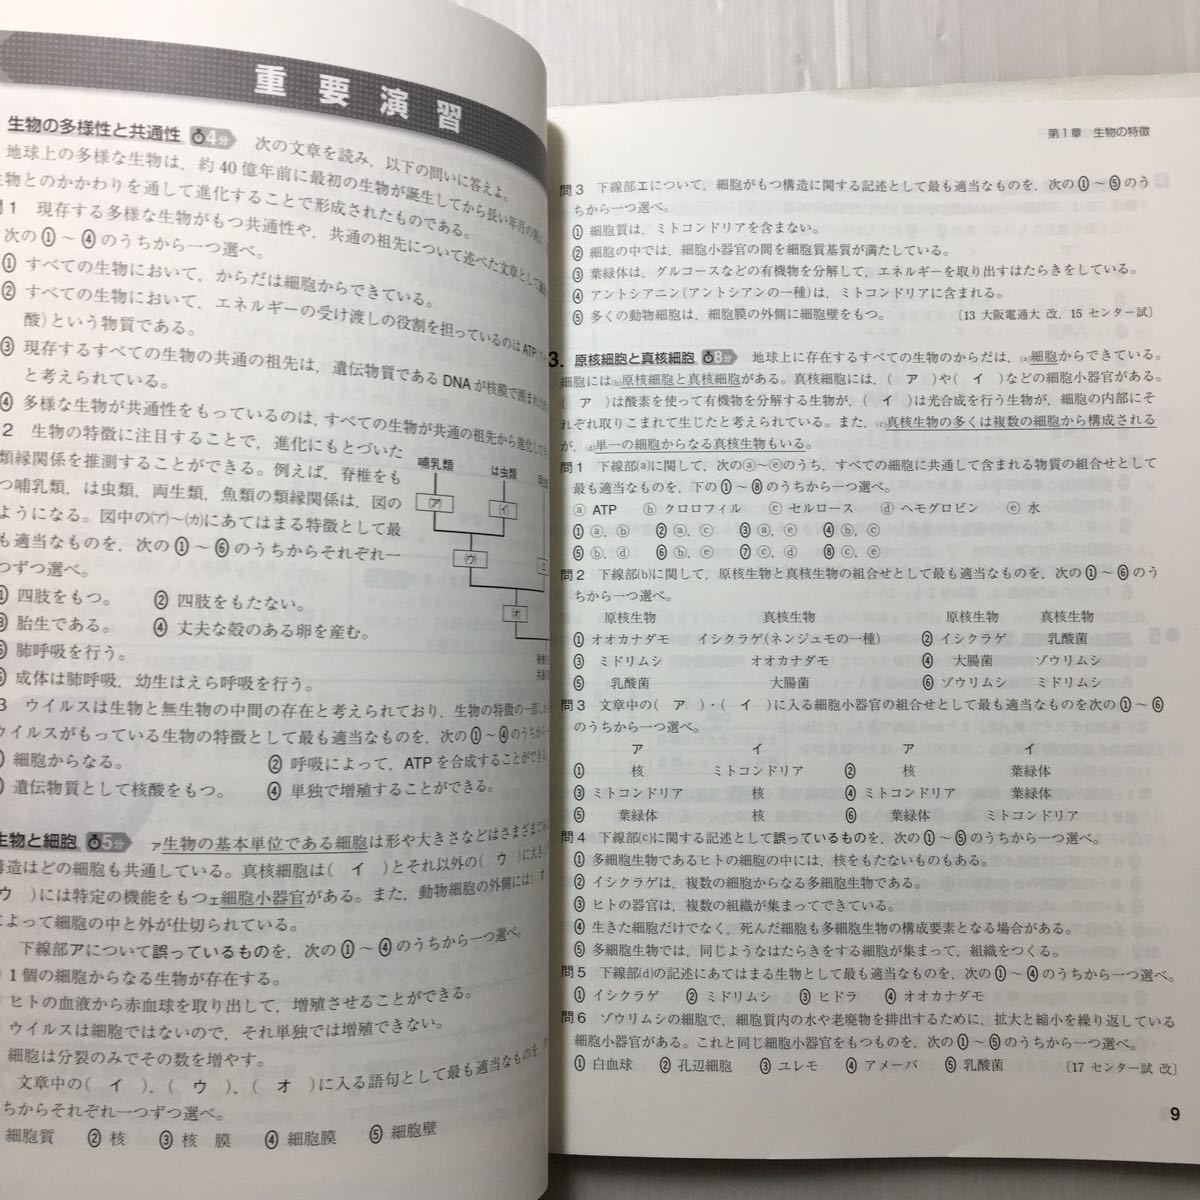 重要演習
生物の多様性と共通性 4分 次の文章を読み，以下の問いに答えよ。
地球上の多様な生物は，約40億年前に最初の生物が誕生してから長い年月の間に，
生物とのかかわりを通して進化することで形成されたものである。
問1 現存する多様な生物がもつ共通性や，共通の祖先について述べた文章として
次の①～④のうちから一つ選べ。
① すべての生物において，からだは細胞からできている。
② すべての生物において，エネルギーの受け渡しの役割を担っているのはATP
酸)という物質である。
③ 現存するすべての生物の共通の祖先は，遺伝物質であるDNAが核膜で囲まれた
と考えられている。
④ 多様な生物が共通性をもっているのは，すべての生物が共通の祖先から進化して
2 生物の特徴に注目することで，進化にもとづいた
類縁関係を推測することができる。例えば，脊椎をも
つ哺乳類，は虫類，両生類，魚類の類縁関係は，図の
ようになる。図中の(ア)～(カ)にあてはまる特徴として最
も適当なものを，次の①～⑥のうちからそれぞれ一
つずつ選べ。
① 四肢をもつ。 ② 四肢をもたない。
③ 胎生である。 ④ 丈夫な殻のある卵を産む。
⑤ 肺呼吸を行う。
⑥ 成体は肺呼吸，幼生はえら呼吸を行う。
哺乳類 は虫類
(ア) (イ)
(ウ)
オ
3 ウイルスは生物と無生物の中間の存在と考えられており，生物の特徴の一部し
ウイルスがもっている生物の特徴として最も適当なものを，次の①～④のうちから一
細胞からなる。 ② 呼吸によって，ATPを合成することができる。
遺伝物質として核酸をもつ。 ④ 単独で増殖することができる。
生物と細胞 5分 ア生物の基本単位である細胞は形や大きさなどはさまざまで
構造はどの細胞も共通している。真核細胞は( イ )とそれ以外の( ウ )に大
ウ )には特定の機能をもつエ細胞小器官がある。また，動物細胞の外側には( オ
によって細胞の中と外が仕切られている。
下線部アについて誤っているものを，次の①～④のうちから一つ選べ。
1個の細胞からなる生物が存在する。
ヒトの血液から赤血球を取り出して，増殖させることができる。
ウイルスは細胞ではないので，それ単独では増殖できない。
細胞は分裂のみでその数を増やす。
文章中の( イ )，( ウ )，( オ )に入る語句として最も適当なものを，
ちからそれぞれ一つずつ選べ。
細胞質 ② 核 ③ 核 膜 ④ 細胞膜 ⑤ 細胞壁
第1章 生物の特徴
問3 下線部エについて，細胞がもつ構造に関する記述として最も適当なものを，次の①～⑤のう
ちから一つ選べ。
① 細胞質は，ミトコンドリアを含まない。
② 細胞の中では，細胞小器官の間を細胞質基質が満たしている。
③ 葉緑体は，グルコースなどの有機物を分解して，エネルギーを取り出すはたらきをしている。
④ アントシアニン(アントシアンの一種)は，ミトコンドリアに含まれる。
⑤ 多くの動物細胞は，細胞膜の外側に細胞壁をもつ。 〔13 大阪電通大 改，15 センター試〕
3. 原核細胞と真核細胞 8分 地球上に存在するすべての生物のからだは，(a)細胞からできている。
細胞には(b)原核細胞と真核細胞がある。真核細胞には，( ア )や( イ )などの細胞小器官がある。
( ア )は酸素を使って有機物を分解する生物が，( イ )は光合成を行う生物が，細胞の内部にそ
れぞれ取りこまれて生じたと考えられている。また，(c)真核生物の多くは複数の細胞から構成される
が，(d)単一の細胞からなる真核生物もいる。
問1 下線部(a)に関して，次のⓐ～ⓔのうち，すべての細胞に共通して含まれる物質の組合せとして
最も適当なものを，下の①～⑧のうちから一つ選べ。
ⓐ ATP ⓑ クロロフィル ⓒ セルロース ⓓ ヘモグロビン ⓔ 水
① ⓐ，ⓑ ② ⓐ，ⓒ ③ ⓐ，ⓔ ④ ⓑ，ⓒ
⑤ ⓑ，ⓓ ⑥ ⓑ，ⓔ ⑦ ⓒ，ⓓ ⑧ ⓒ，ⓔ
問2 下線部(b)に関して，原核生物と真核生物の組合せとして最も適当なものを，次の①～⑥のう
ちから一つ選べ。
原核生物 真核生物 原核生物 真核生物
① オオカナダモ イシクラゲ(ネンジュモの一種) ② イシクラゲ 乳酸菌
③ ミドリムシ オオカナダモ ④ 大腸菌 ゾウリムシ
⑤ 乳酸菌 大腸菌 ⑥ ゾウリムシ ミドリムシ
問3 文章中の( ア )・( イ )に入る細胞小器官の組合せとして最も適当なものを次の①～⑥
のうちから一つ選べ。
ア イ ア イ
① 核 ミトコンドリア ② 核 葉緑体
③ ミトコンドリア 核 ④ ミトコンドリア 葉緑体
⑤ 葉緑体 核 ⑥ 葉緑体 ミトコンドリア
問4 下線部(c)に関する記述として誤っているものを，次の①～⑤のうちから一つ選べ。
① 多細胞生物であるヒトの細胞の中には，核をもたないものもある。
② イシクラゲは，複数の細胞からなる多細胞生物である。
③ ヒトの器官は，複数の組織が集まってできている。
④ 生きた細胞だけでなく，死んだ細胞も多細胞生物の構成要素となる場合がある。
⑤ 多細胞生物では，同じようなはたらきをする細胞が集まって，組織をつくる。
問5 下線部(d)の記述にあてはまる生物として最も適当なものを，次の①～④のうちから一つ選べ。
① イシクラゲ ② ミドリムシ ③ ヒドラ ④ オオカナダモ
問6 ゾウリムシの細胞で，細胞質内の水や老廃物を排出するために，拡大と縮小を繰り返している
細胞小器官がある。これと同じ細胞小器官をもつものを，次の①～⑤のうちから一つ選べ。
① 白血球 ② 孔辺細胞 ③ ユレモ ④ アメーバ ⑤ 乳酸菌 〔17 センター試 改〕
9